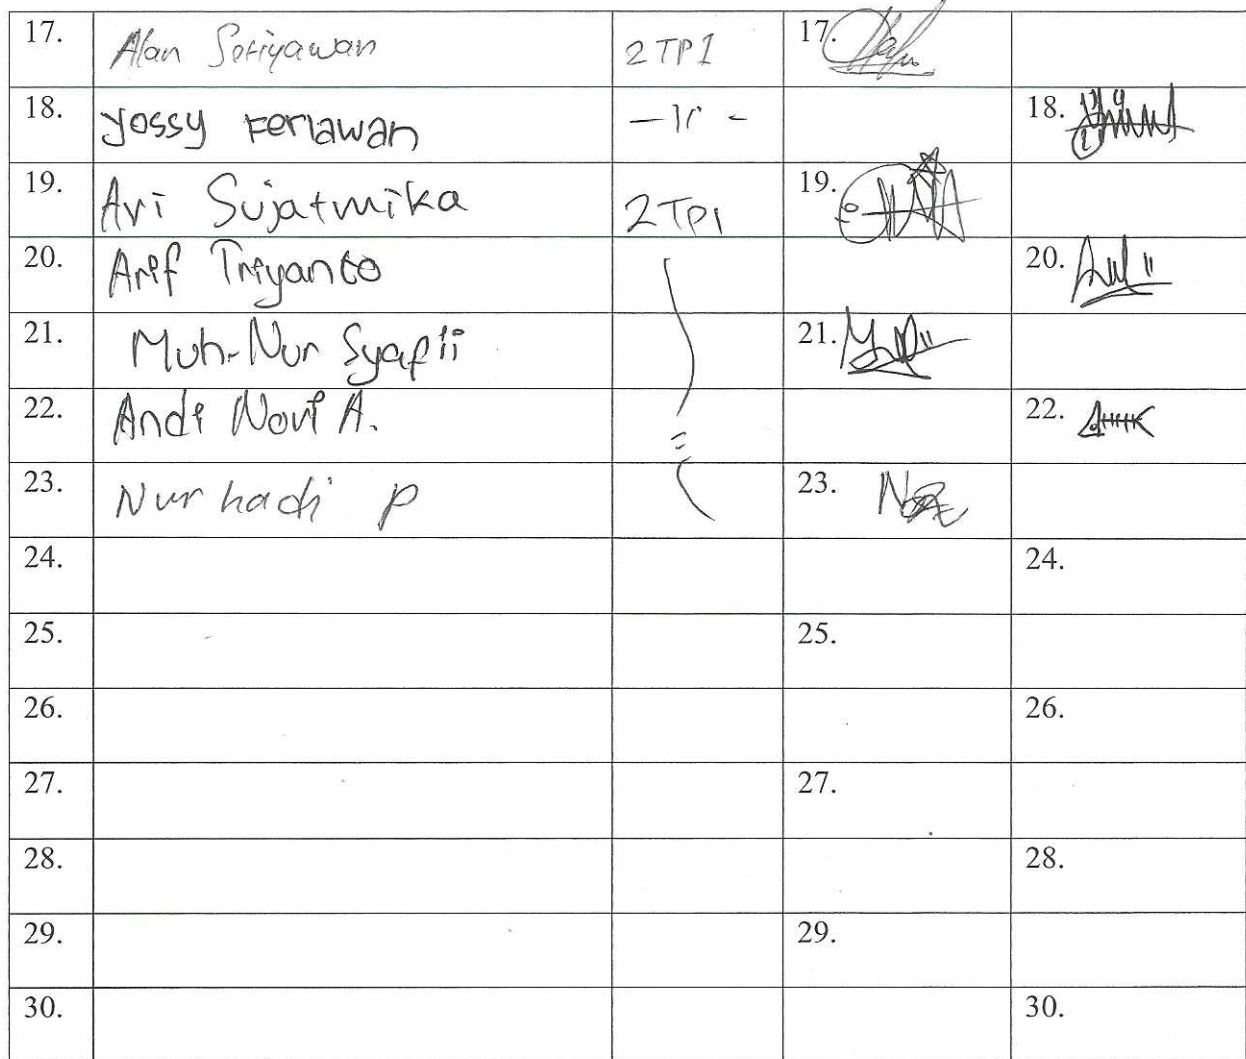 17. Alan Setiyawan 2 TP1 17.
18. Yossy Ferlawan — 11 - 18.
19. Ari Sujatmika 2 TP1 19.
20. Arif Triyanto 20.
21. Muh. Nur Syafii 21.
22. Andi Novi A. 22.
23. Nur hadi P 23.
24. 24.
25. 25.
26. 26.
27. 27.
28. 28.
29. 29.
30. 30.